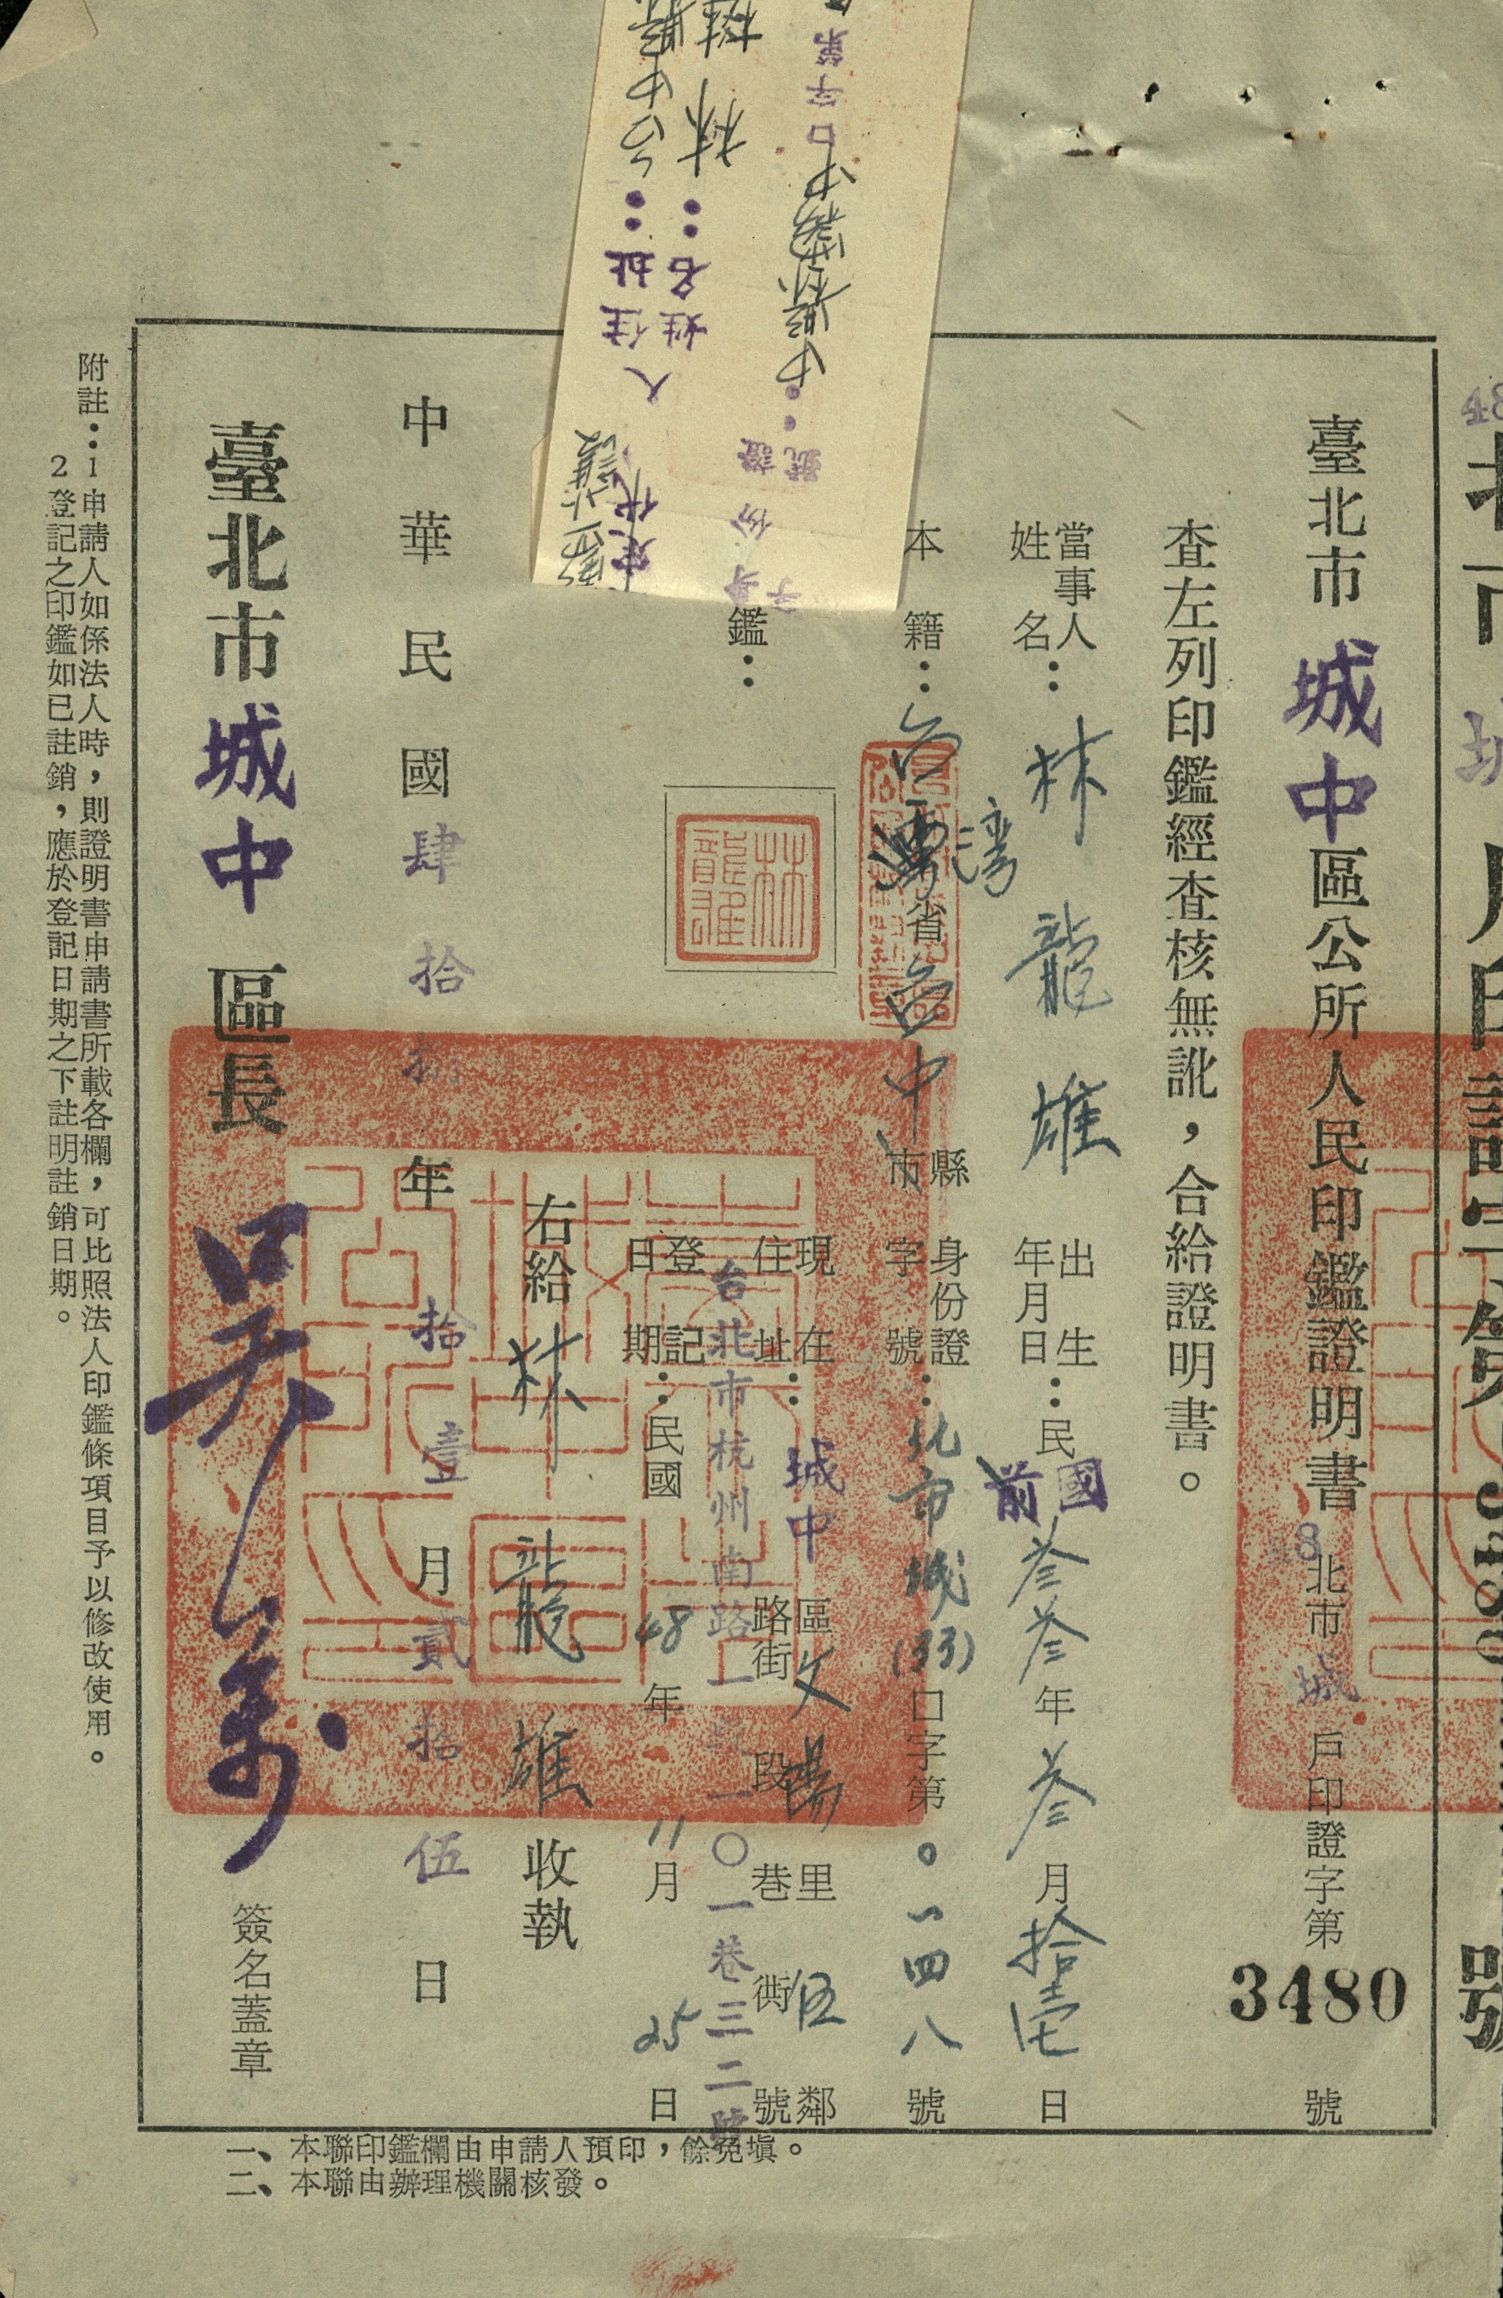 臺北市城中區公所人民印鑑證明書 北市城戶印證字第3480號
查左列印鑑經查核無訛，合給證明書。
當事人姓名：林龍雄 出生年月日：民國前叁叁年叁月拾壹日
本籍：台灣省台中縣市 身份證字號：北市城(33)口字第〇一四八號
現在住址：城中區文 里伍鄰 路街 段 巷 衖 號
台北市杭州南路一段一〇一巷三二號
鑑：
林龍雄
登記日期：民國48年11月25日
右給 林龍雄 收執
中華民國肆拾捌年拾壹月貳拾伍日
臺北市城中區長 簽名蓋章
附註：1申請人如係法人時，則證明書申請書所載各欄，可比照法人印鑑條項目予以修改使用。
2登記之印鑑如已註銷，應於登記日期之下註明註銷日期。
一、本聯印鑑欄由申請人預印，餘免塡。
二、本聯由辦理機關核發。
姓名：林
住址：台中縣